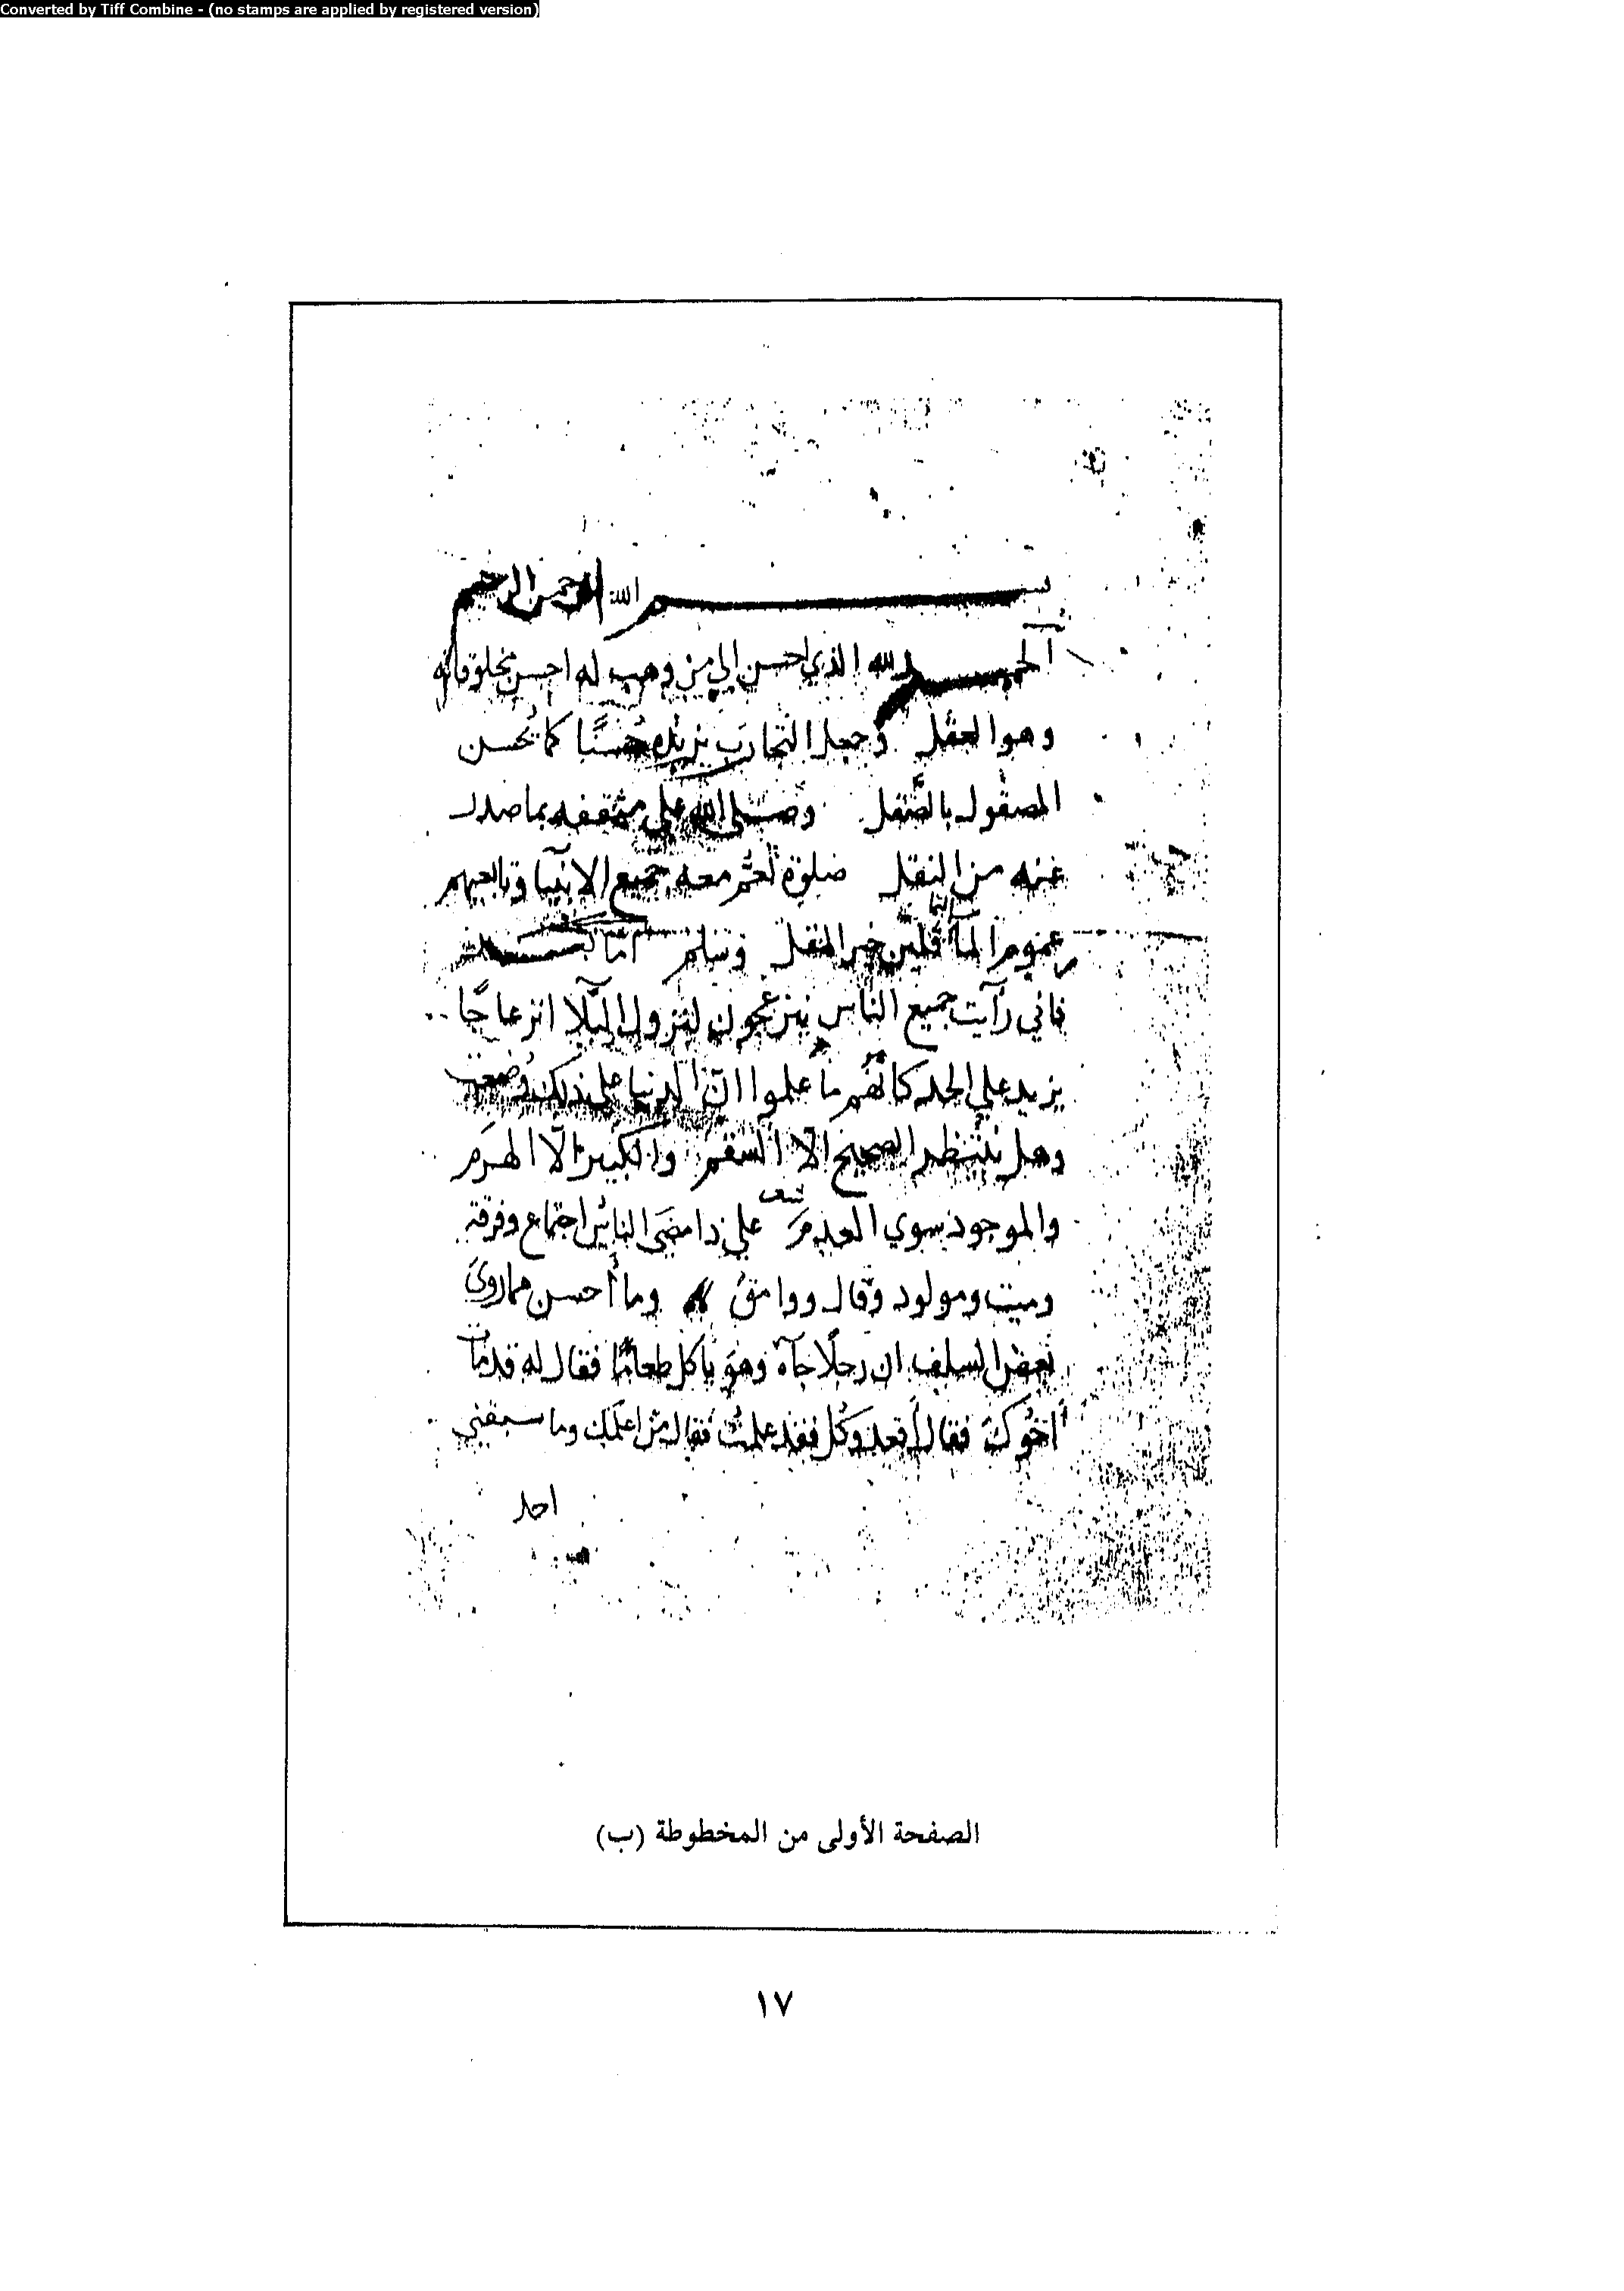 Converted by Tiff Combine - (no stamps are applied by registered version)
بسم الله الرحمن الرحيم
الحمد لله الذي احسن الي من وهب له احسن مخلوقاته
وهو العقل وجعل التجارب تزيده حُسنًا كما تُحسن
المصقول بالصَّقل وصلى الله على مثقفه بما صدر
عنه من النقل صلوة تعُمّ معه جميع الانبيآ وتابعيهم
عموم خير النقل وسلم أمّا بعد
فاني رأيت جميع الناس ينزعجون لنزول البَلآ انزعاجًا
يزيد علي الحد كانّهُم ما علموا انّ الدنيا علي ذلك وُضعت
وهل ينتظر الصحيح الّا السقم والكبير الّا الهرَم
والموجود سوي العدم شعر علي ذا مضَى الناس اجتماع وفرقة
وميت ومولود وقال ووامقُ وما أحسن مما رويَ
بعض السلف ان رجلًا جآه وهوَ يأكل طعامًا فقال له قد مات
اخُوكَ فقال أقعد وكُل فقد علمتُ فقال من اعلمك وما سبقني
احد
الصفحة الأولى من المخطوطة (ب)
١٧